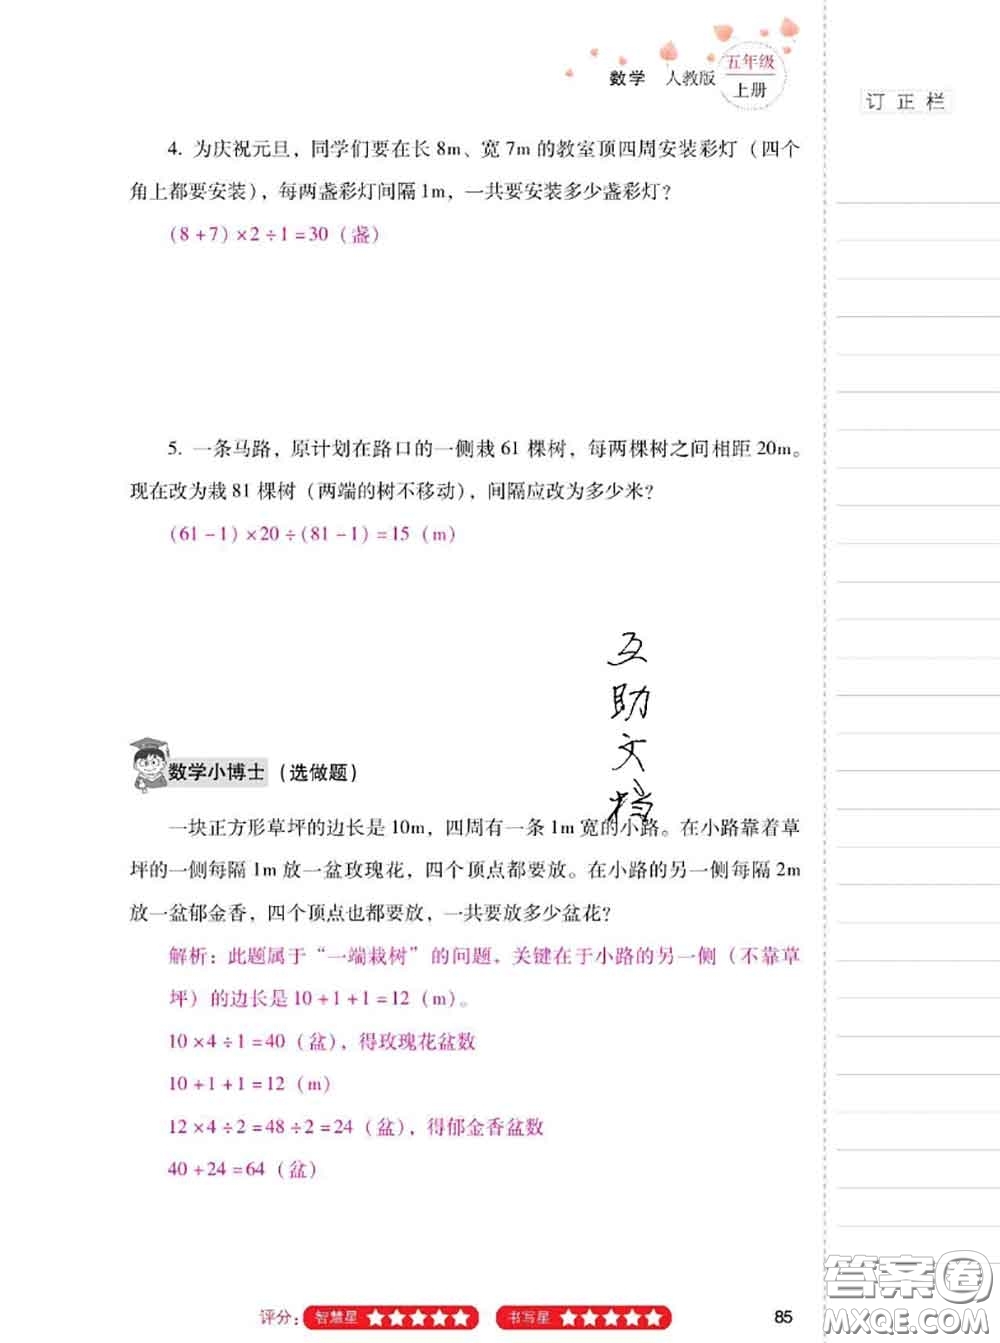 数学 人教版 五年级
上册
订正栏
4. 为庆祝元旦，同学们要在长 8m、宽 7m 的教室顶四周安装彩灯（四个
角上都要安装），每两盏彩灯间隔 1m，一共要安装多少盏彩灯？
(8+7)×2÷1=30（盏）
5. 一条马路，原计划在路口的一侧栽 61 棵树，每两棵树之间相距 20m。
现在改为栽 81 棵树（两端的树不移动），间隔应改为多少米？
(61-1)×20÷(81-1)=15（m）
互
助
文
档
数学小博士（选做题）
一块正方形草坪的边长是 10m，四周有一条 1m 宽的小路。在小路靠着草
坪的一侧每隔 1m 放一盆玫瑰花，四个顶点都要放。在小路的另一侧每隔 2m
放一盆郁金香，四个顶点也都要放，一共要放多少盆花？
解析：此题属于“一端栽树”的问题，关键在于小路的另一侧（不靠草
坪）的边长是 10+1+1=12（m）。
10×4÷1=40（盆），得玫瑰花盆数
10+1+1=12（m）
12×4÷2=48÷2=24（盆），得郁金香盆数
40+24=64（盆）
评分：智慧星 ★★★★★ 书写星 ★★★★★
85
答案圈
MXQE.COM